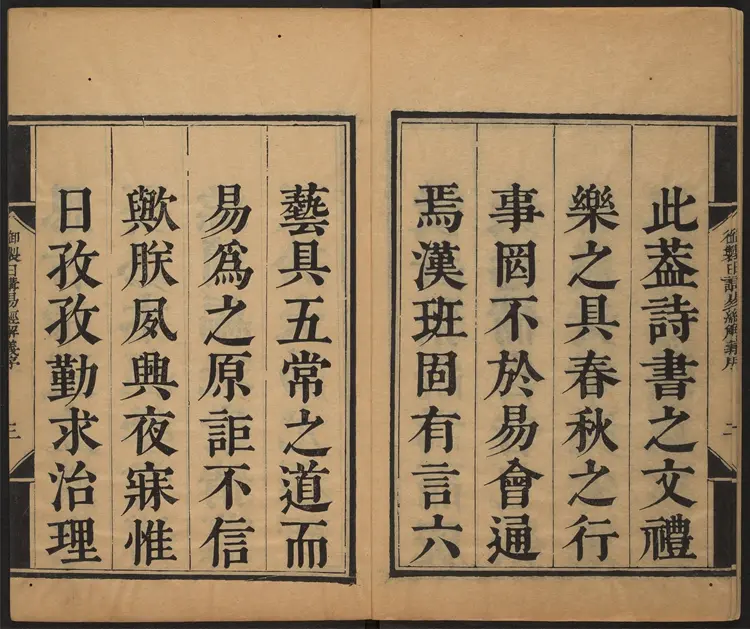 此葢詩書之文禮
樂之具春秋之行
事罔不於易會通
焉漢班固有言六
藝具五常之道而
易爲之原詎不信
歟朕夙興夜寐惟
日孜孜勤求治理
御製日講易經解義序
二
御製日講易經解義序
三